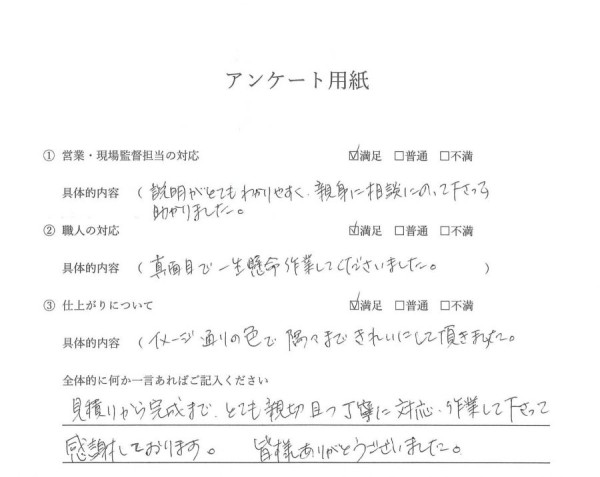 アンケート用紙
① 営業・現場監督担当の対応 ☑満足 □普通 □不満
具体的内容 ( 説明がとてもわかりやすく、親身に相談にのって下さって
助かりました。
② 職人の対応 ☑満足 □普通 □不満
具体的内容 ( 真面目で一生懸命作業してくださいました。 )
③ 仕上がりについて ☑満足 □普通 □不満
具体的内容 ( イメージ通りの色で隅々まできれいにして頂きました。
全体的に何か一言あればご記入ください
見積りから完成まで、とても親切且つ丁寧に対応、作業して下さって
感謝しております。 皆様ありがとうございました。